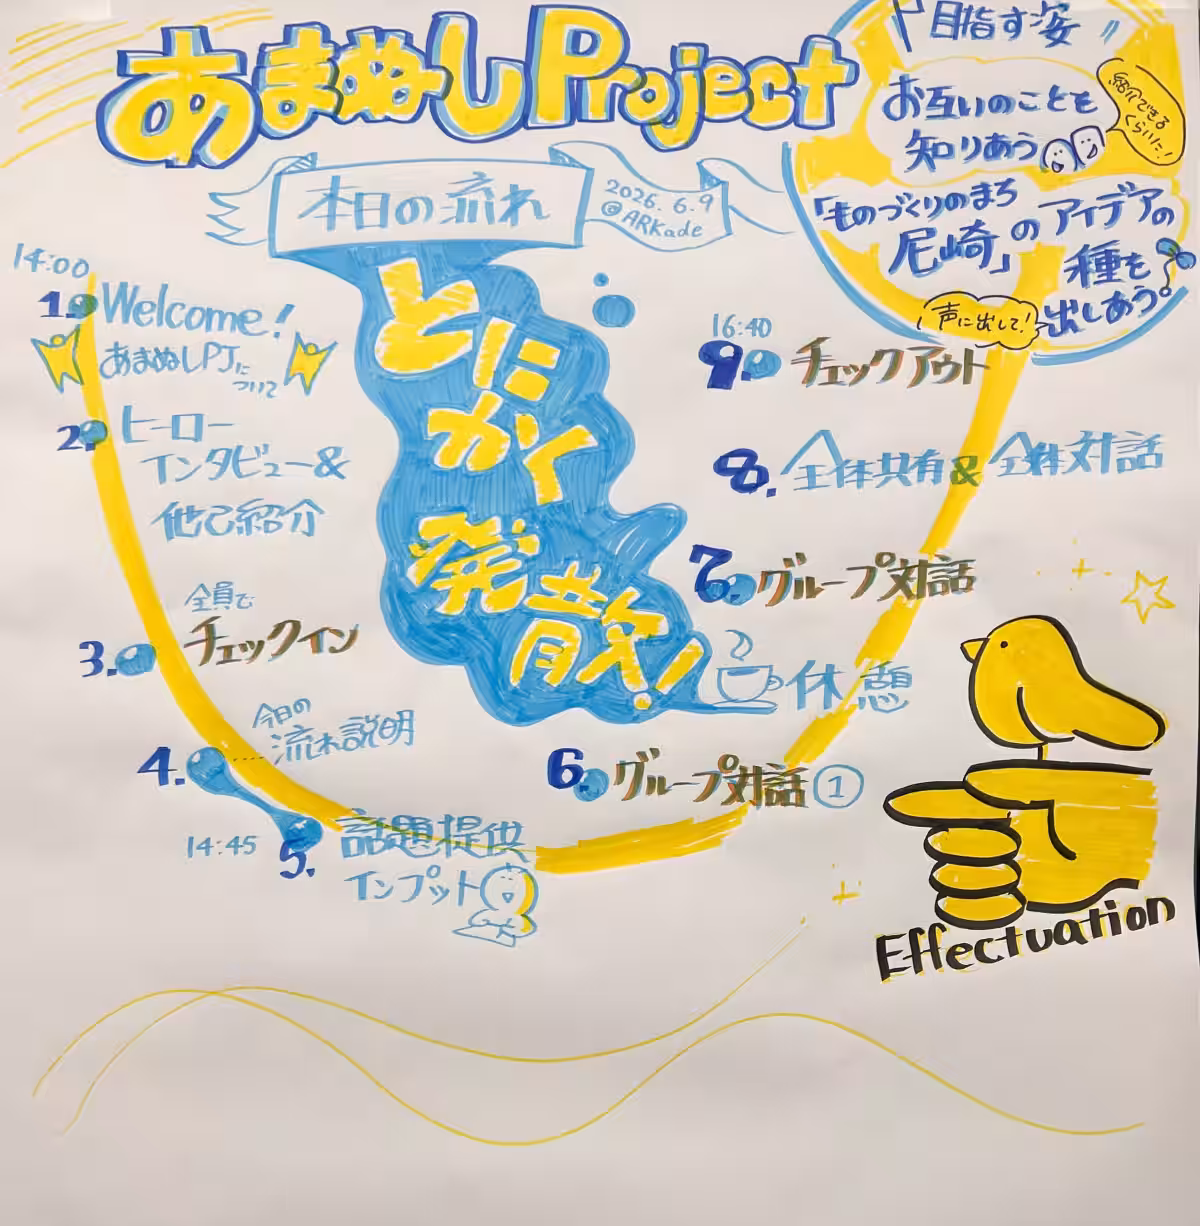 あまぬしProject
本日の流れ
2026.6.9
@ARKade
目指す姿
お互いのことを
知りあう
紹介できる
くらいに!
「ものづくりのまち
尼崎」のアイデアの
種を
出しあう。
声に出して!
とにかく
発散!
14:00
1. Welcome!
あまぬしPJに
ついて
2. ヒーロー
インタビュー&
他己紹介
全員で
3. チェックイン
今日の
4. 流れ説明
14:45
5. 話題提供
インプット
6. グループ対話①
休憩
7. グループ対話
8. 全体共有&全体対話
16:40
9. チェックアウト
Effectuation